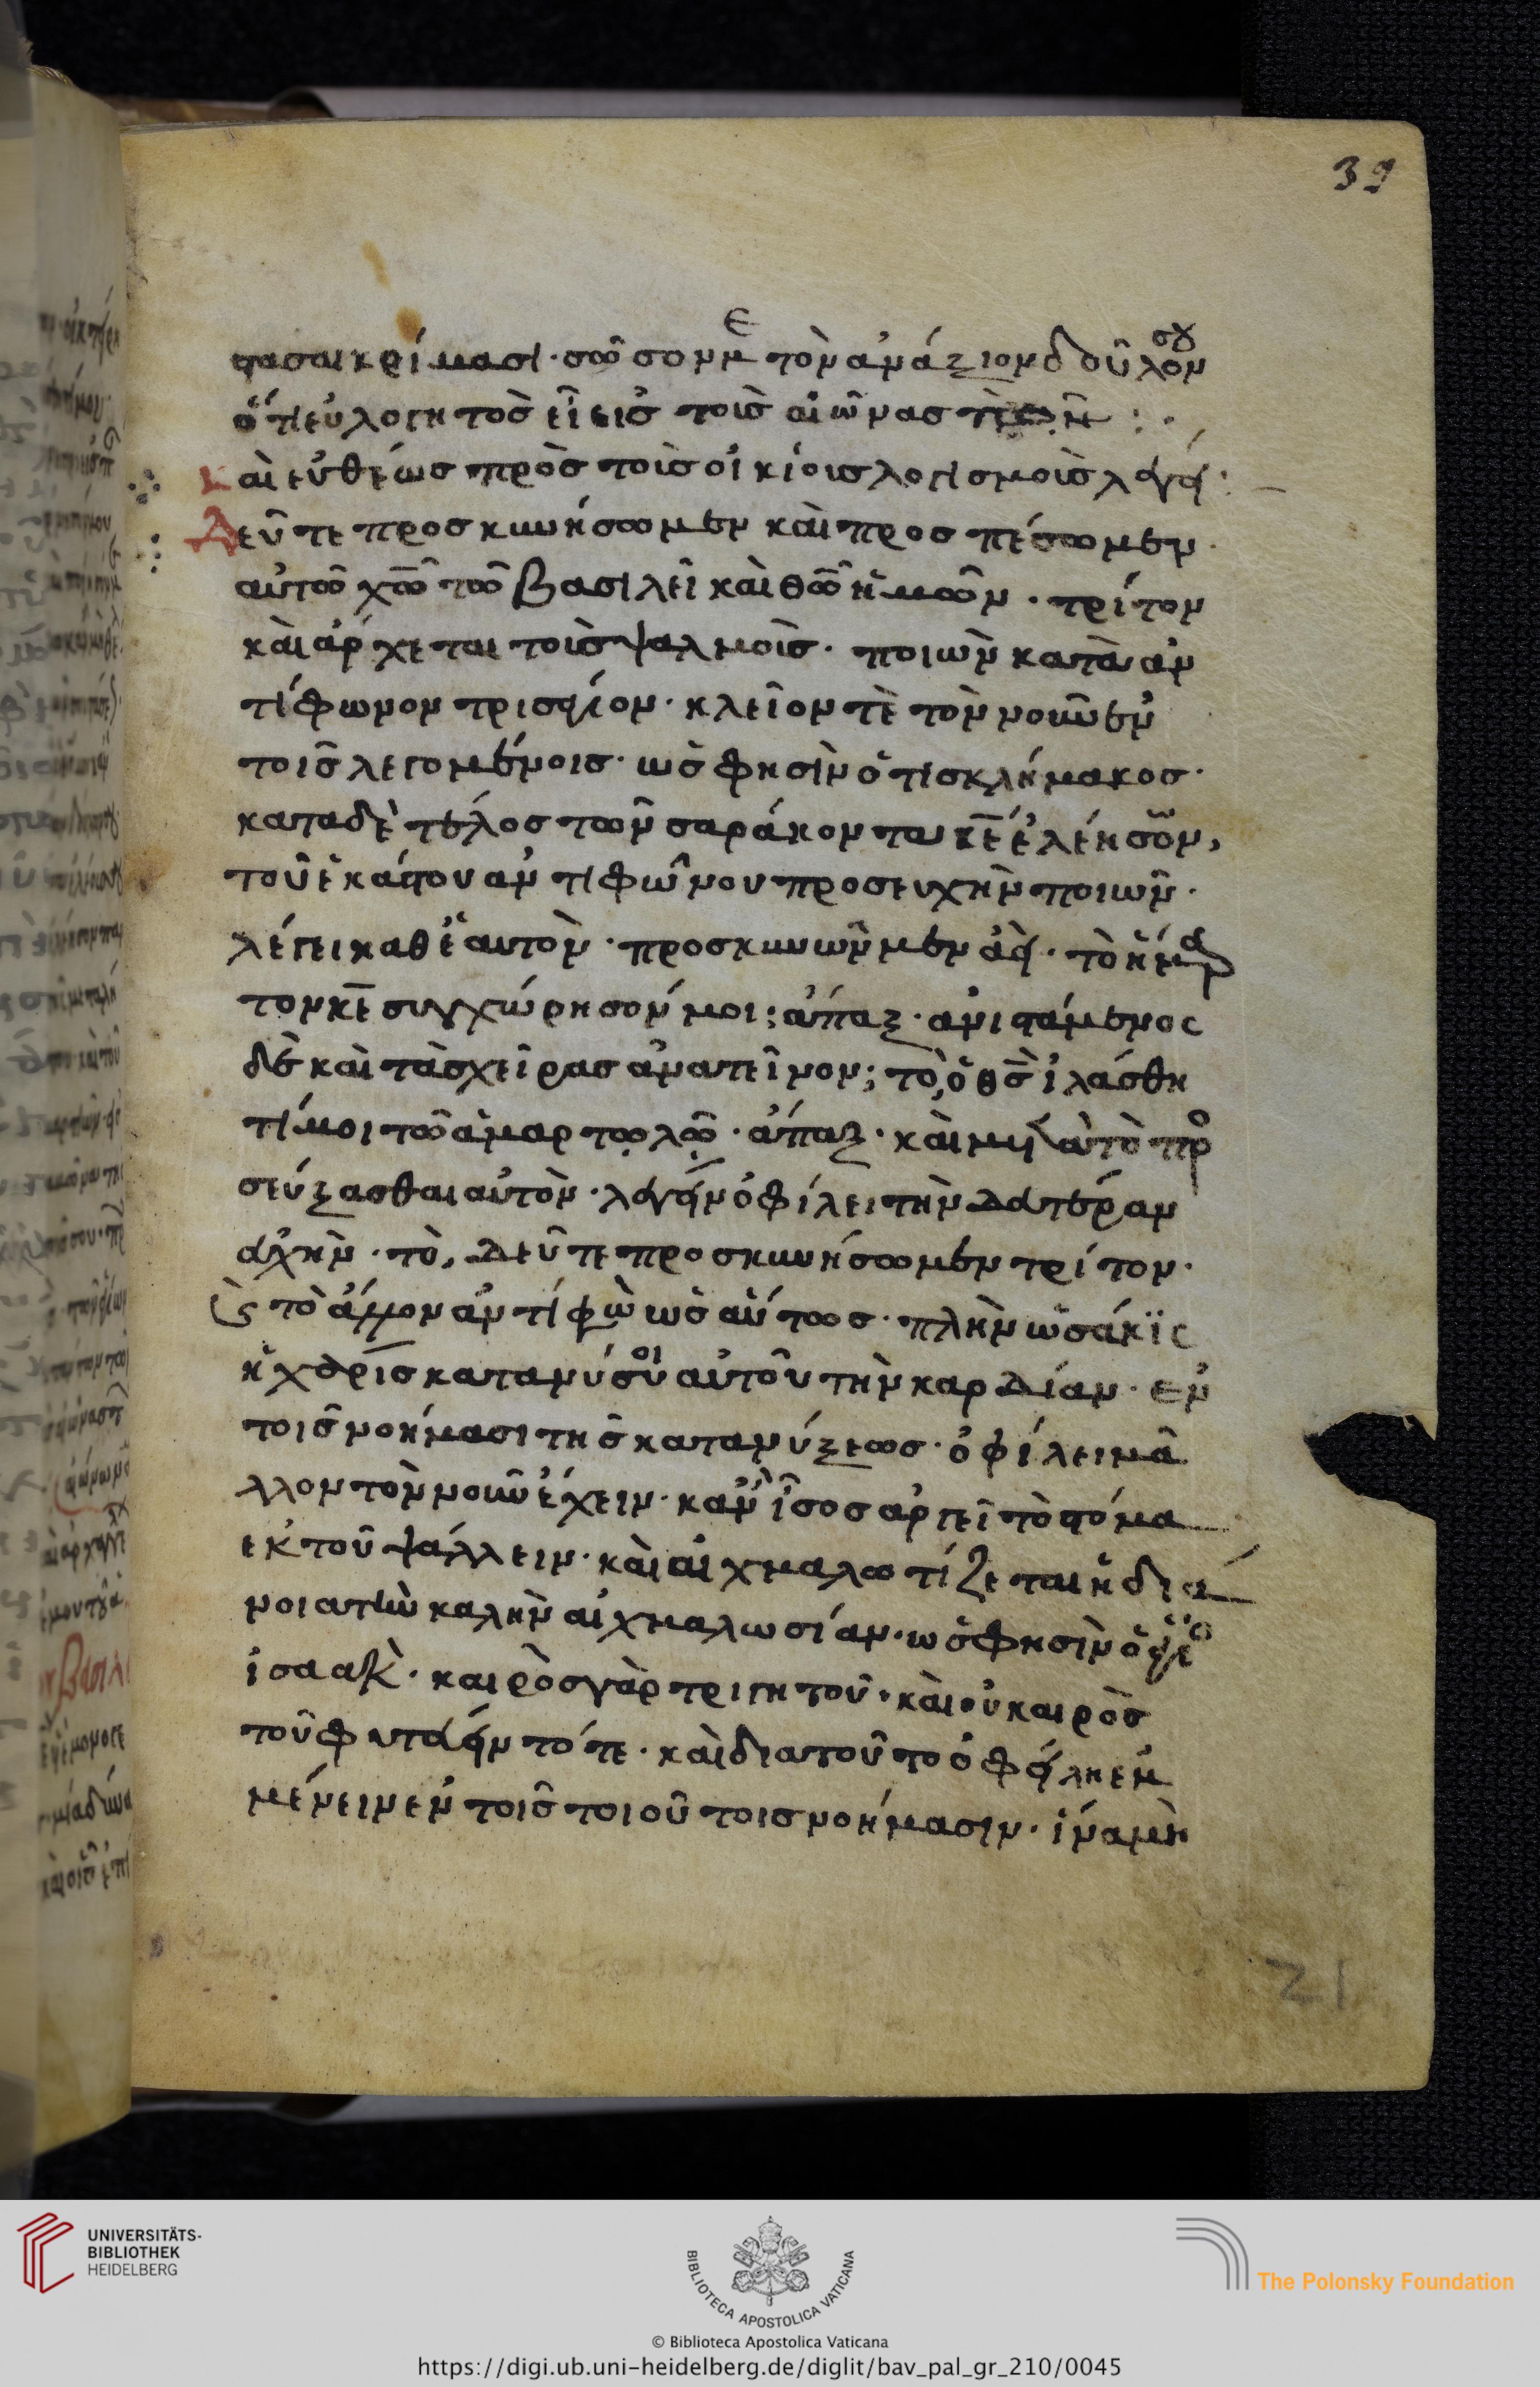 39
στασαι κρίμασι· σῶσόν με τὸν ἀνάξιον δοῦλόν σου
ὅτι εὐλογητὸς εἶ εἰς τοὺς αἰῶνας
καὶ εὐθέως πρὸς τοῖς οἰκίοις λογισμοῖς λέγει:
Δεῦτε προσκυνήσωμεν καὶ προσπέσωμεν
αὐτῶ χω τῶ βασιλεῖ καὶ θω ἡμῶν. τρίτον
καὶ ἄρχεται τοῖς ψαλμοῖς. ποιῶν κατὰ ἀν
τίφωνον τρισάγιον. κλεῖον τὲ τὸν νοῦν ἐν
τοῖς λεγομένοις. ὡς φησὶν ὁ τῆς κλήμακος.
κατα δὲ τέλος τῶν σαράκοντα κε ἐλέησον,
τοῦ ἑκάστου ἀντιφώνου προσευχὴν ποιῶν.
λέγει καθ ἑαυτὸν. προσκυνῶν μὲν . τὸ ἥμαρ
τον κε συγχώρησόν μοι; ἅπαξ. ἀνιστάμενος
δὲ καὶ τὰς χεῖρας ἀνατεῖνον; τὸ, ὁ θς ἱλάσθη
τί μοι τῶ ἁμαρτωλῶ. ἅπαξ. καὶ μετὰ τὸ προ
σεύξασθαι αὐτὸν. λέγειν ὀφίλει τὴν δευτέραν
ἀρχὴν. τὸ, Δεῦτε προσκυνήσωμεν τρίτον.
εἰς τὸ ἄλλον ἀντίφω ὡσαύτως. πλὴν ὡσάκϊς
ἡ χάρις κατανύσσοι αὐτοῦ τὴν καρδίαν. ἐν
τοῖς νοήμασι τῆς κατανύξεως. ὀφίλει μᾶ
λλον τὸν νοῦν ἔχειν. κἂν ἴσος ἀργεῖ τὸ στόμα
ἐκ τοῦ ψάλλειν. καὶ αἰχμαλωτίζεται ἡ διά
νοια τὴν καλὴν αἰχμαλωσίαν. ὡς φησὶν ὁ
ἰσαακ. καιρὸς γὰρ τρυγητοῦ. καὶ οὐ καιρὸς
τοῦ φυτεύειν τότε. καὶ δια τοῦτο ὀφείλη ἐμ
μένειν ἐν τοῖς τοιούτοις νοήμασιν. ἵνα μὴ
21
UNIVERSITÄTS-
BIBLIOTHEK
HEIDELBERG
BIBLIOTECA APOSTOLICA VATICANA
The Polonsky Foundation
© Biblioteca Apostolica Vaticana
https://digi.ub.uni-heidelberg.de/diglit/bav_pal_gr_210/0045